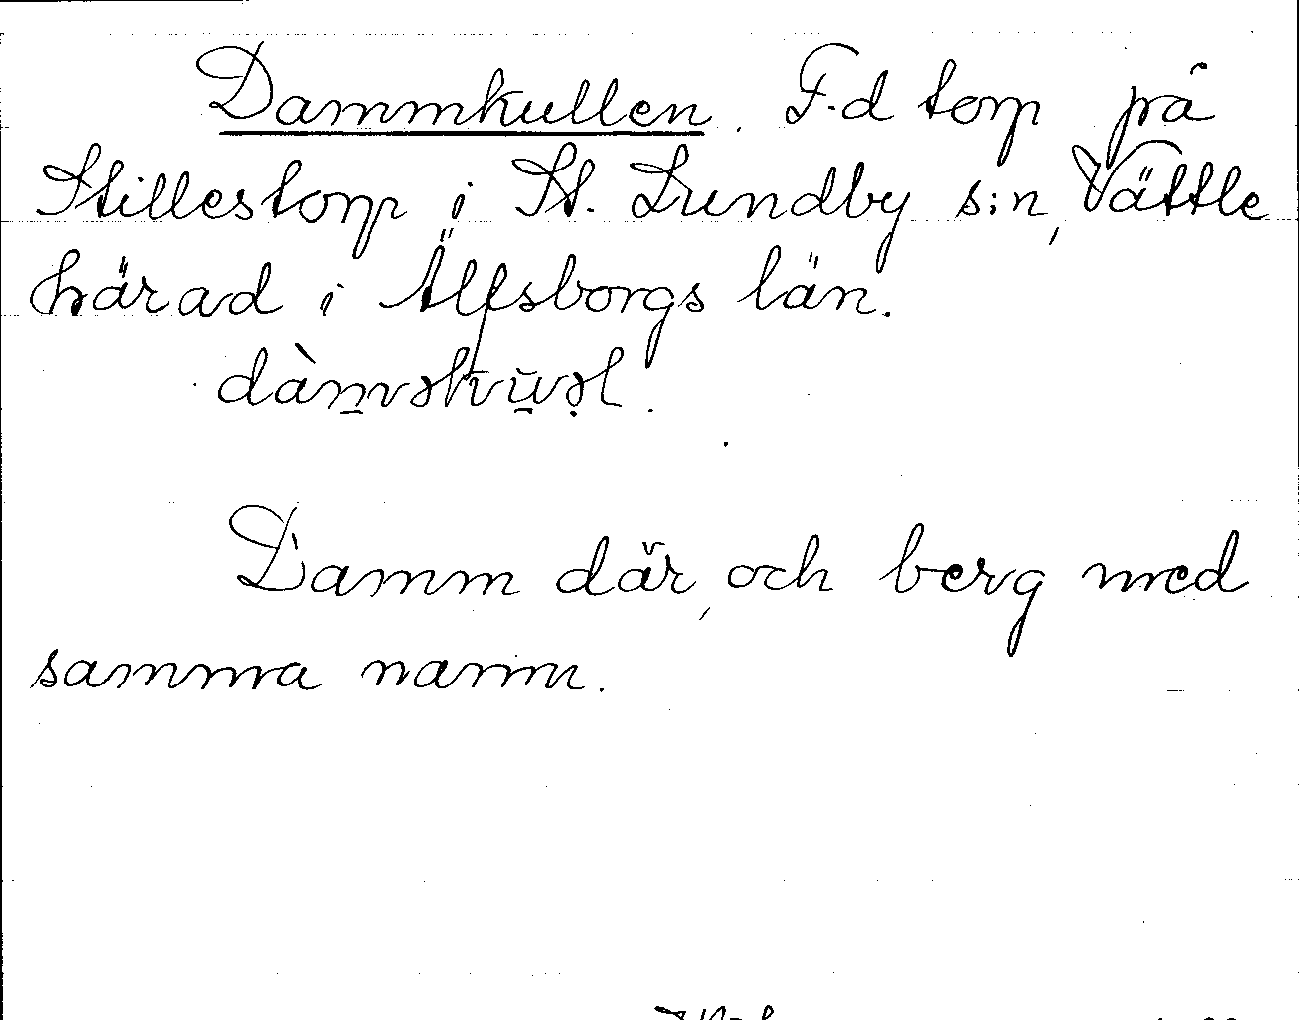 Dammkullen. F.d torp på
Stillestorp i St. Lundby s:n, Vättle
härad i Älfsborgs län.
Damm där, och berg med
samma namn.